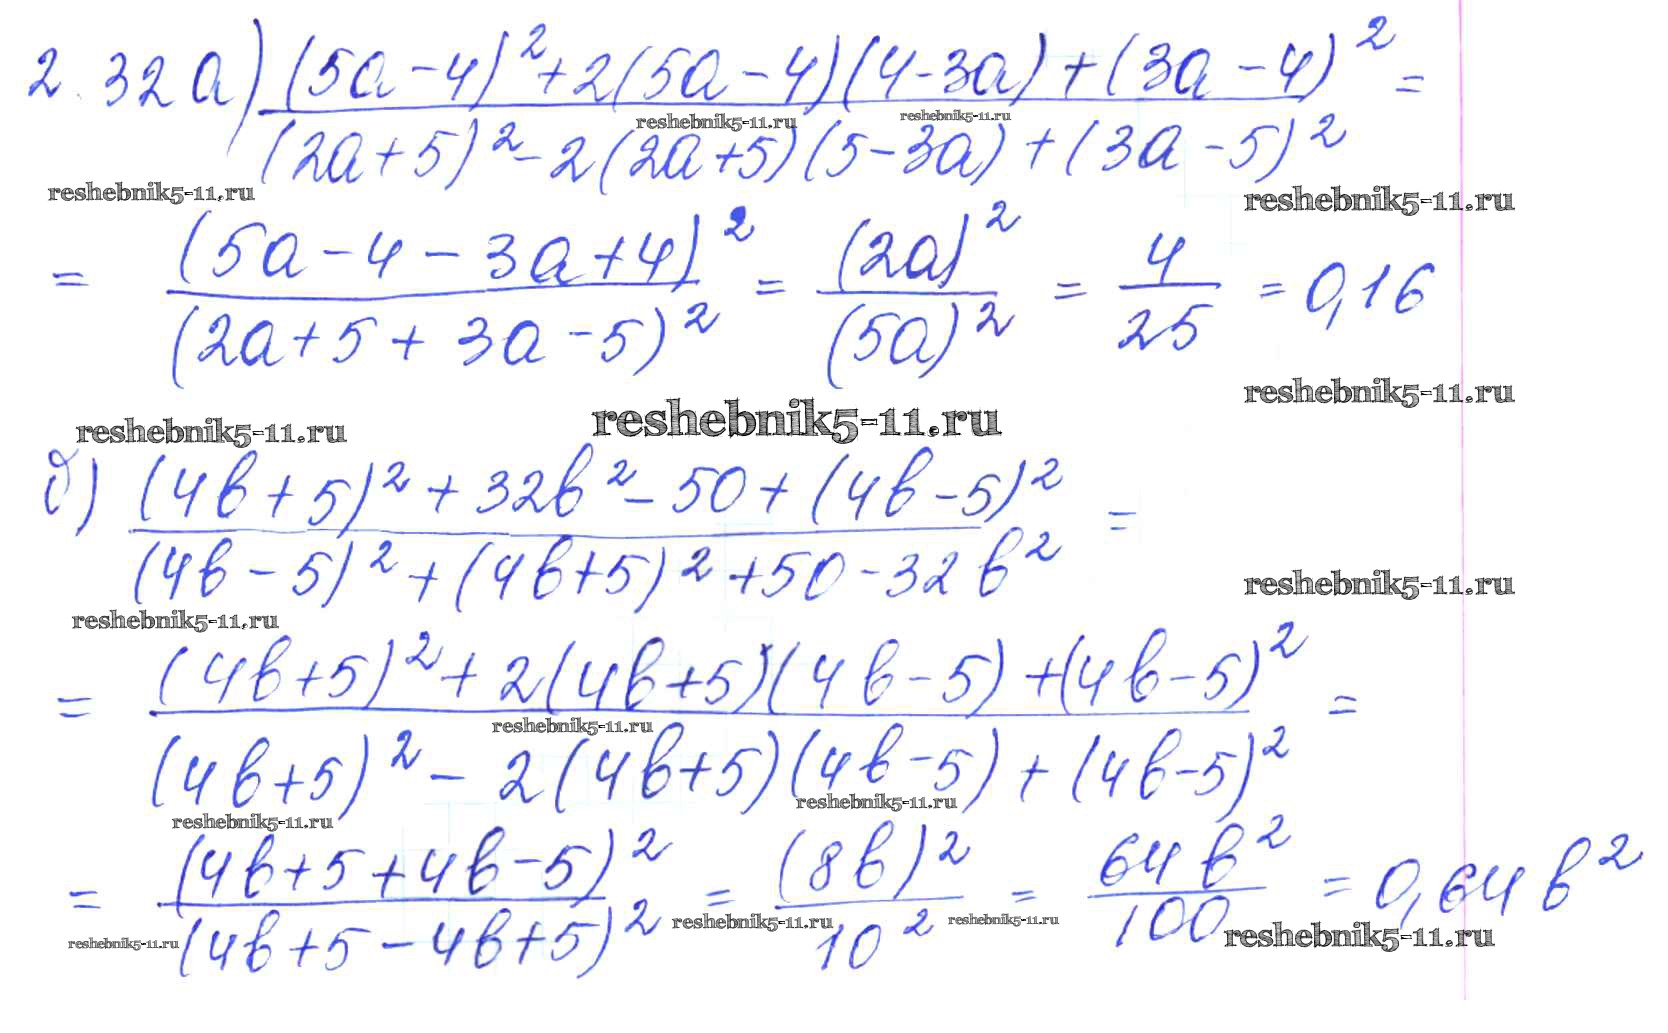 2.32 а) (5a-4)²+2(5a-4)(4-3a)+(3a-4)² =
reshebnik5-11.ru reshebnik5-11.ru
(2a+5)²-2(2a+5)(5-3a)+(3a-5)²
reshebnik5-11.ru reshebnik5-11.ru
= (5a-4-3a+4)² / (2a+5+3a-5)² = (2a)² / (5a)² = 4/25 = 0,16
reshebnik5-11.ru
reshebnik5-11.ru reshebnik5-11.ru
б) (4b+5)²+32b²-50+(4b-5)² =
(4b-5)²+(4b+5)²+50-32b²
reshebnik5-11.ru reshebnik5-11.ru
= (4b+5)²+2(4b+5)(4b-5)+(4b-5)² =
reshebnik5-11.ru
(4b+5)²-2(4b+5)(4b-5)+(4b-5)²
reshebnik5-11.ru reshebnik5-11.ru
= (4b+5+4b-5)² / (4b+5-4b+5)² = (8b)² / 10² = 64b² / 100 = 0,64b²
reshebnik5-11.ru reshebnik5-11.ru reshebnik5-11.ru reshebnik5-11.ru